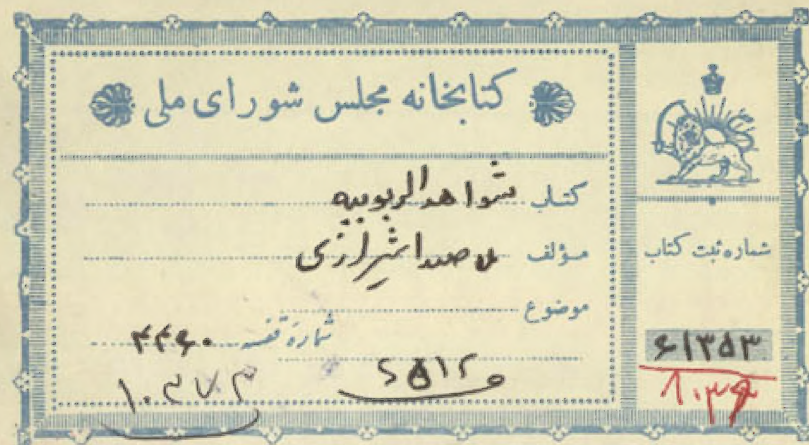 کتابخانه مجلس شورای ملی
کتاب شواهدالربوبیه
مؤلف ملا صدرا شیرازی
موضوع
شماره قفسه ۴۴۶۰
۱۰۳۷۳
شماره ثبت کتاب
۶۱۳۵۳